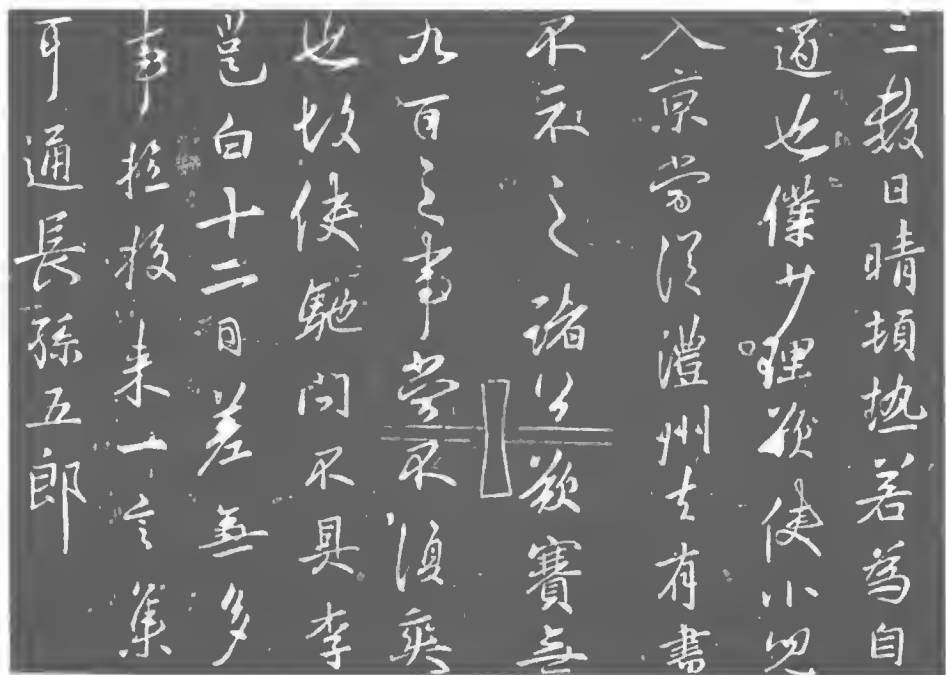 二數日晴頓热若為自
適也僕少理欲使小兒
入京當從澧州去有書
不示之諸公欲賽無
九百之事當不須爽
也故使馳問不具李
邕白十二日差無多
事报来一言集
耳通長孫五郎